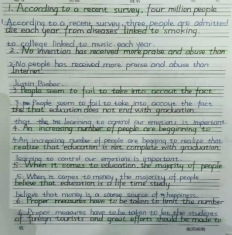 1. According to a recent survey, four million people
1. According to a recent survey, three people are admitted
die each year from diseases linked to smoking.
to college linked to music each year.
2. No invention has received more praise and abuse than
2. No people has received more praise and abuse than
Internet.
Justin Bieber.
3. People seem to fail to take into account the fact
3. people seem to fail to take into account the fact
the that education does not end with graduation.
that the learning to control our emotions is important.
4. An increasing number of people are beginning to
4. An increasing number of people are begging to realize that
realize that education is not complete with graduation.
learning to control our emotions is important.
5. When it comes to education, the majority of people
5. When it comes to money, the majority of people
believe that education is a life time study.
believe that money is a some source of happiness.
6. Proper measures have to be taken to limit the number
6. Proper measures have to be taken to let the students
of foreign tourists and great efforts should be made to